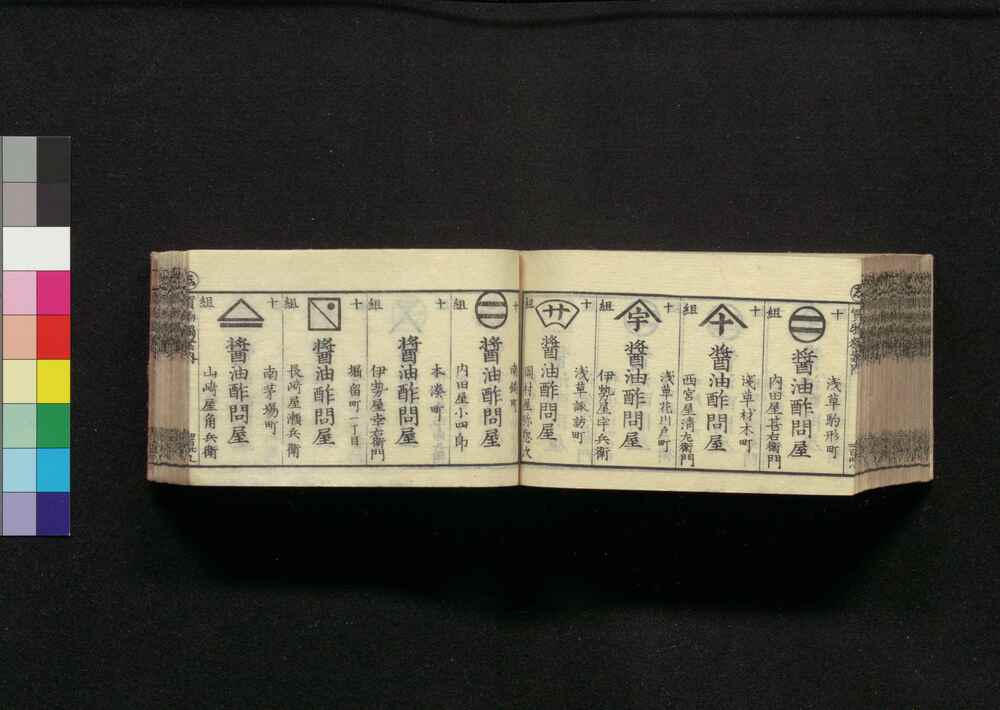 十組
浅草駒形町
醤油酢問屋
内田屋甚右衛門
十組
十
浅草材木町
醤油酢問屋
西宮屋清左衛門
十組
宇
浅草花川戸町
醤油酢問屋
伊勢屋宇兵衛
十組
廿
浅草諏訪町
醤油酢問屋
十組
醤油酢問屋
内田屋小四郎
十組
本湊町
醤油酢問屋
伊勢屋幸右衛門
十組
堀留町一丁目
醤油酢問屋
長崎屋瀬兵衛
十組
南茅場町
醤油酢問屋
山崎屋角兵衛